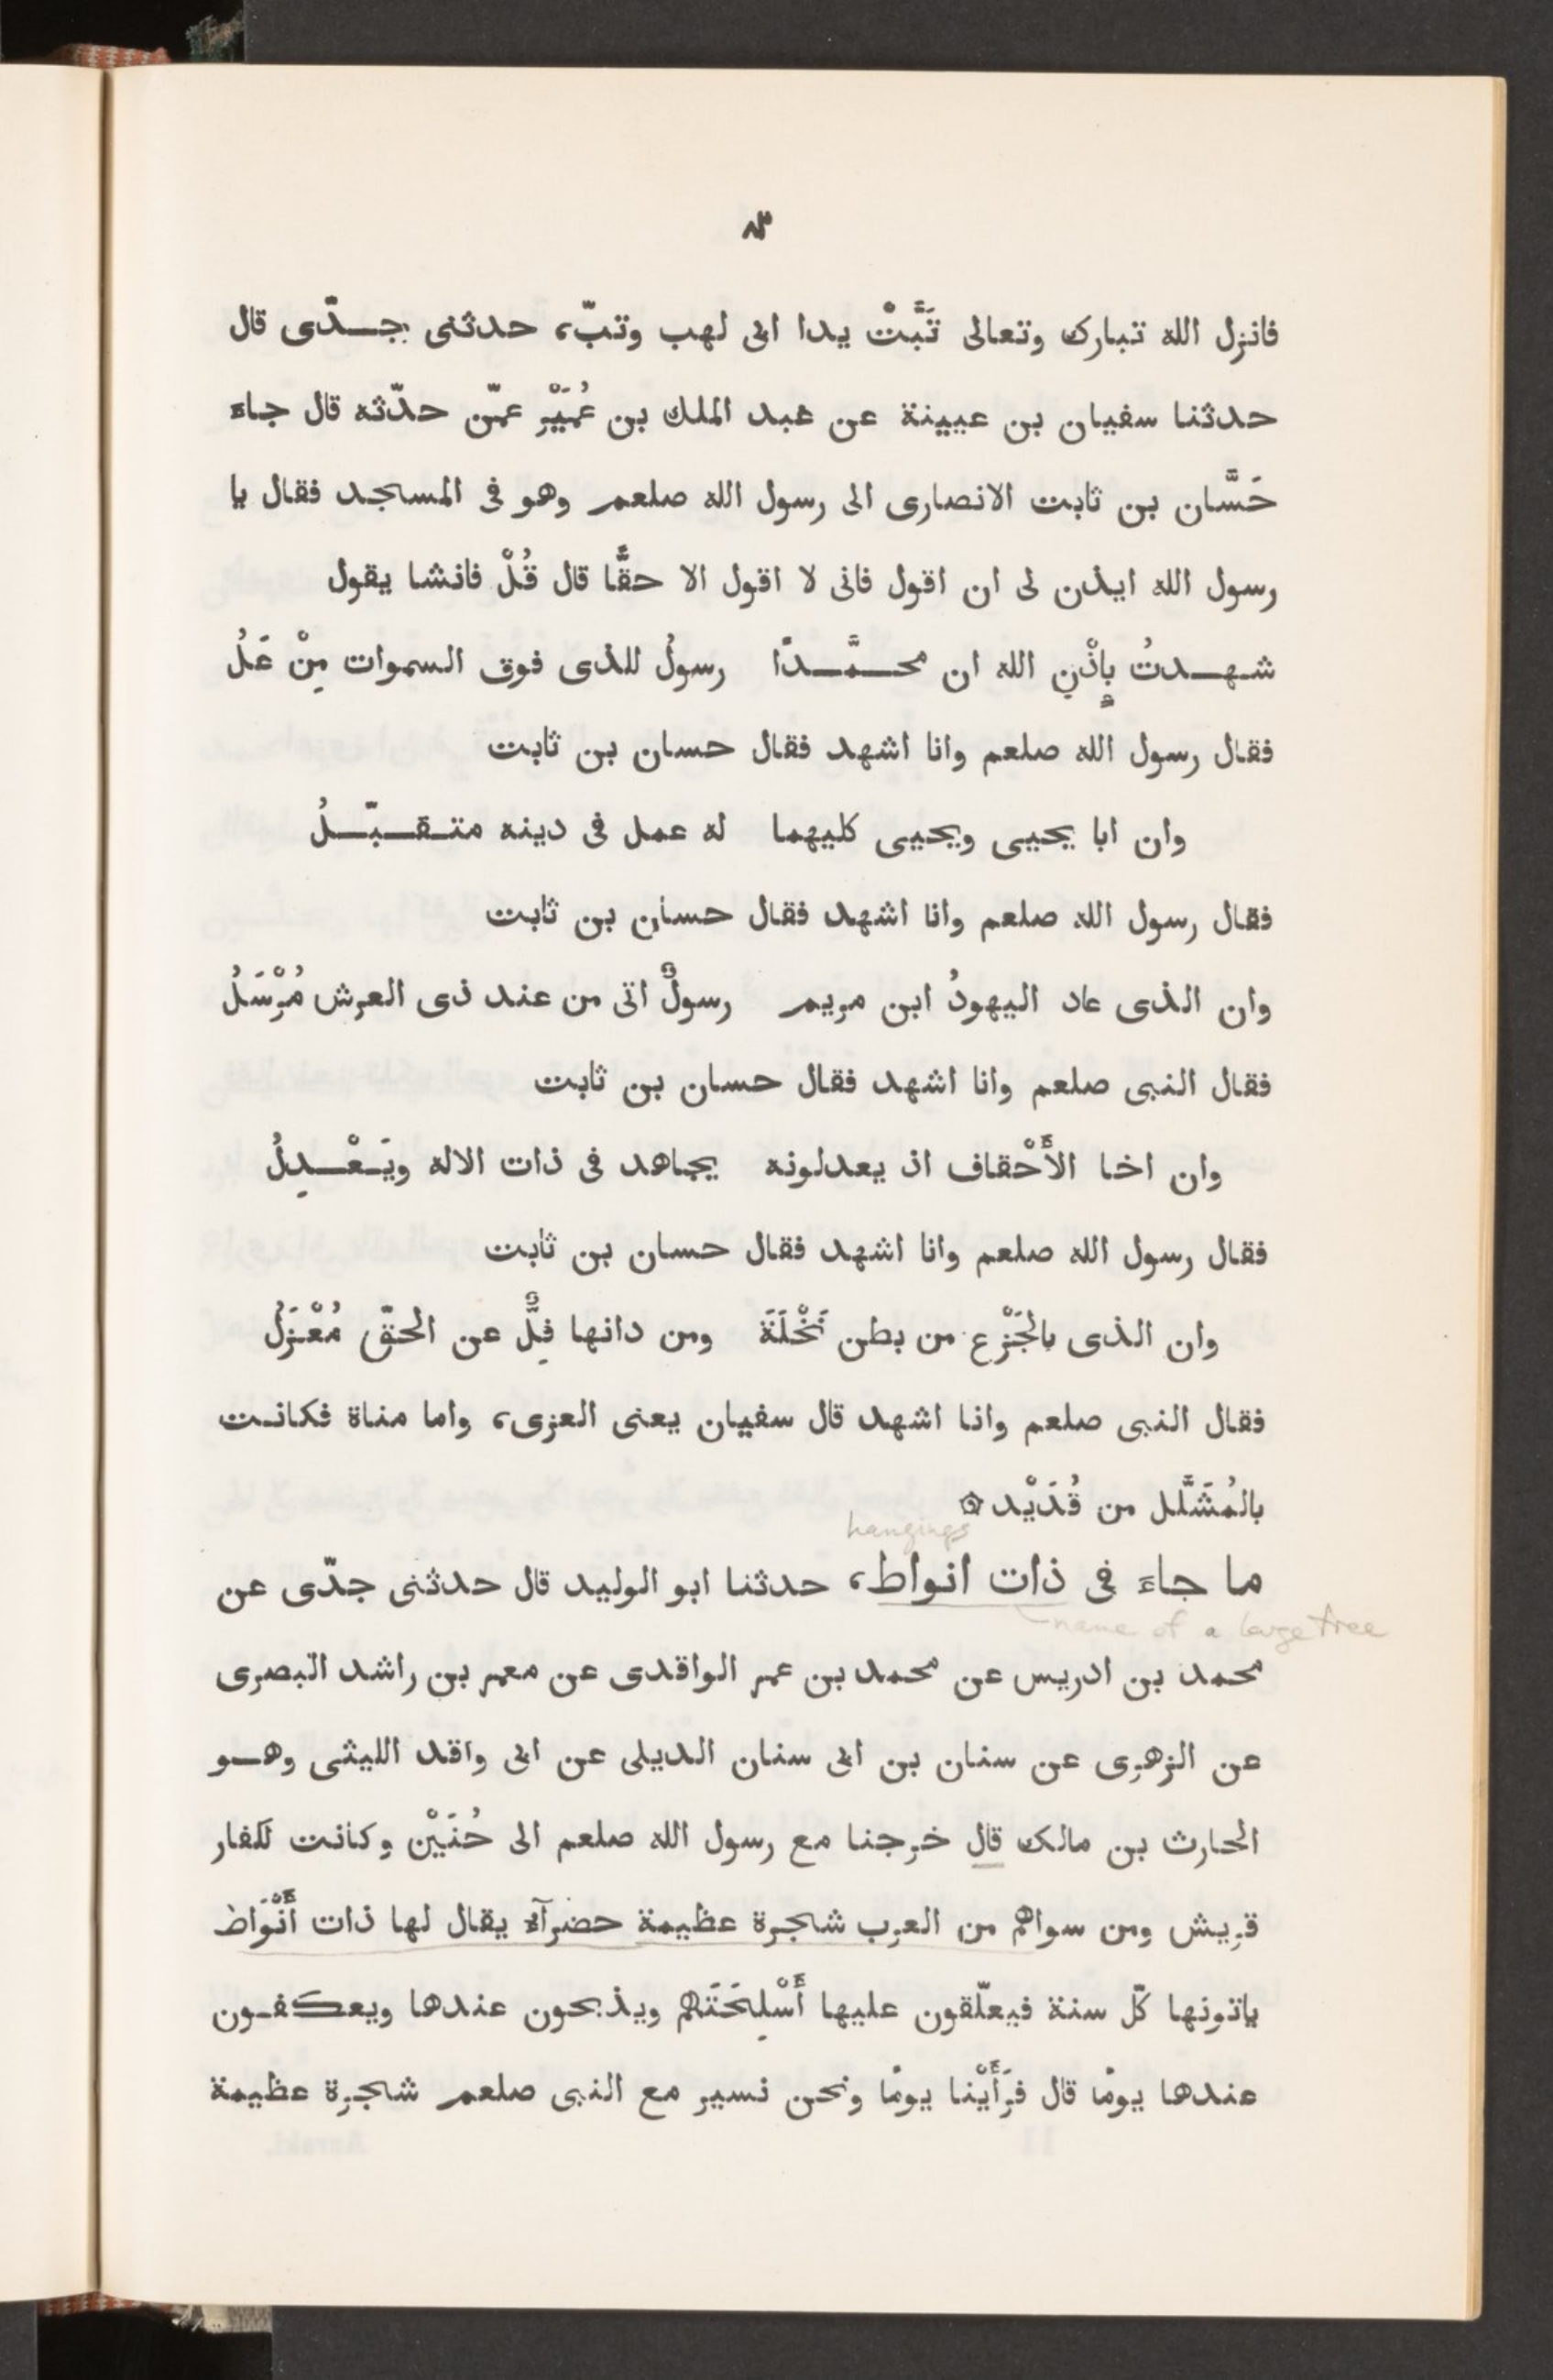 ٨٣
فانزل الله تبارك وتعالى تَبَّتْ يدا ابى لهب وتبّ، حدثنى جـــدّى قال
حدثنا سفيان بن عيينة عن عبد الملك بن عُمَيْر عمّن حدّثه قال جاء
حَسَّان بن ثابت الانصارى الى رسول الله صلعم وهو فى المسجد فقال يا
رسول الله ايذن لى ان اقول فانى لا اقول الا حقًّا قال قُلْ فانشا يقول
شهـــدتُ بِاِذْنِ الله ان محـــمَّـــدًا رسولُ للذى فوق السموات مِنْ عَلُ
فقال رسول الله صلعم وانا اشهد فقال حسان بن ثابت
وان ابا يحيى ويحيى كليهما له عمل فى دينه متـقـــبّـــلُ
فقال رسول الله صلعم وانا اشهد فقال حسان بن ثابت
وان الذى عاد اليهودُ ابن مريم رسولٌ اتى من عند ذى العرش مُرْسَلُ
فقال النبى صلعم وانا اشهد فقال حسان بن ثابت
وان اخا الأَحْقاف اذ يعدلونه يجاهد فى ذات الاله ويَـــعْـــدِلُ
فقال رسول الله صلعم وانا اشهد فقال حسان بن ثابت
وان الذى بالجَزْع من بطن نَخْلَةَ ومن دانها فِلٌّ عن الحقّ مُعْزَلُ
فقال النبى صلعم وانا اشهد قال سفيان يعنى العزى، واما مناة فكانـت
بالمُشَلَّل من قُدَيْد ۞
hangings
ما جاءَ فى ذات انواط، حدثنا ابو الوليد قال حدثنى جدّى عن
name of a large tree
محمد بن ادريس عن محمد بن عمر الواقدى عن معمر بن راشد البصرى
عن الزهرى عن سنان بن ابى سنان الديلى عن ابى واقد الليثى وهــو
الحارث بن مالك قال خرجنا مع رسول الله صلعم الى حُنَيْن وكانت لكفار
قريش ومن سواهم من العرب شجرة عظيمة خضرآء يقال لها ذات أَنْوَاط
ياتونها كلّ سنة فيعلّقون عليها أَسْلِحَتَهم ويذبحون عندها ويعكفــون
عندها يومًا قال فرَأَيْنا يومًا ونحن نسير مع النبى صلعم شجرة عظيمة